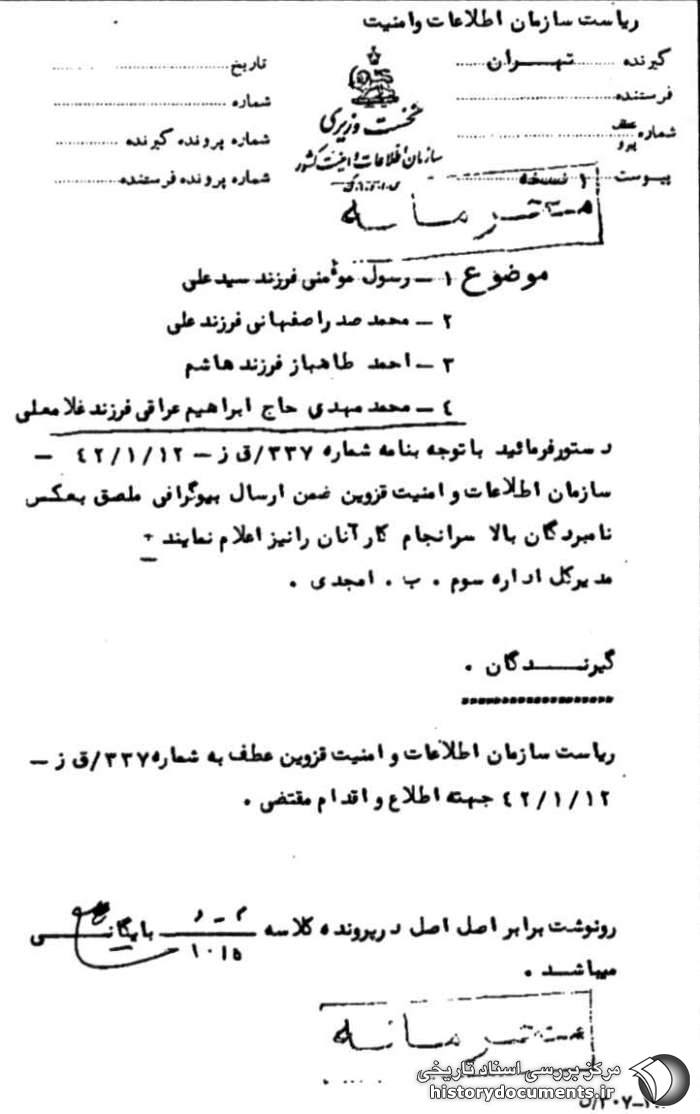 ریاست سازمان اطلاعات وامنیت
گیرنده تهـــران
فرستنده
شماره عطف
پیرو
پیوست ۱ نسخه
نخست وزیری
سازمان اطلاعات و امنیت کشور
س.ا.و.ا.ک
تاریخ
شماره
شماره پرونده گیرنده
شماره پرونده فرستنده
محرمانه
موضوع ۱ ــ رسول موءمنی فرزند سیدعلی
۲ ــ محمد صدر اصفهانی فرزند علی
۳ ــ احمد طاهباز فرزند هاشم
۴ ــ محمد مهدی حاج ابراهیم عراقی فرزند غلامعلی
دستورفرمائید باتوجه بنامه شماره ۳۳۷/ق ز ــ ۴۲/۱/۱۲ ــ
سازمان اطلاعات و امنیت قزوین ضمن ارسال بیوگرافی ملصق بعکس
نامبردگان بالا سرانجام کار آنان رانیز اعلام نمایند
مدیرکل اداره سوم . ب . امجدی .
گیرنــــدگان .
ریاست سازمان اطلاعات و امنیت قزوین عطف به شماره ۳۳۷/ق ز ــ
۴۲/۱/۱۲ جهته اطلاع و اقدام مقتضی .
رونوشت برابر اصل اصل درپرونده کلاسه م ــ د / ۱۰۱۵ بایگانــــی
میباشد .
محرمانه
مرکز بررسی اسناد تاریخی
historydocuments.ir